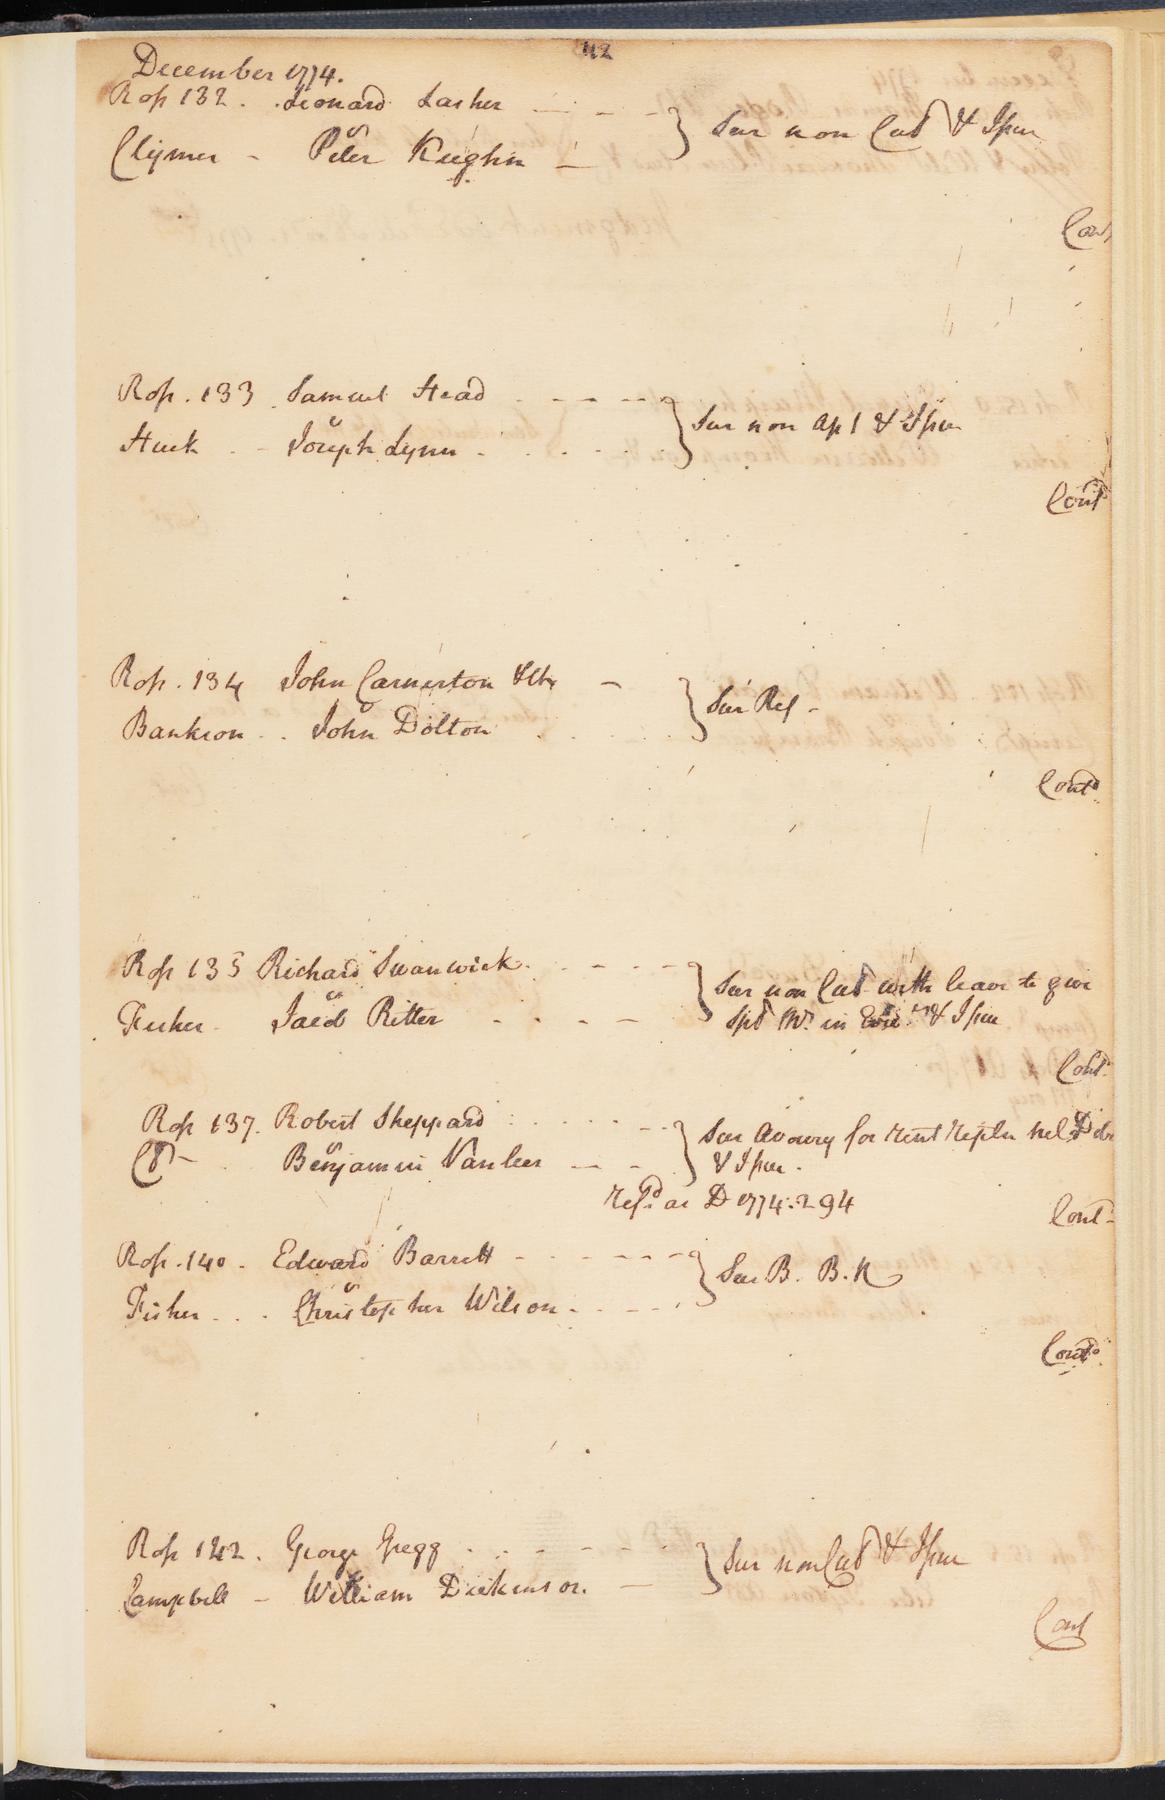 42
December 1774.
Ross 132. Leonard Lasher
Clymer - Peter Kughn
vs
} Sur non Cul & Issue
Cont
Ross. 133 Samuel Head
vs
Joseph Lynn
} Sur non Ap & Issue
Cont
Ross. 134 John Carnerton
vs
Bankson - John Dolton
} Sur Rep -
Contd
Ross 135 Richard Swanwick
vs
Fisher - Jacob Ritter
} Sur non Cul with leave to give
Spl Mr in Evid & Issue
Cont
Ross 137. Robert Sheppard
vs
Do - Benjamin Vanleer
} Sur Avowry for rent
& Issue.
Refd as D 1774. 294
Cont
Ross. 140. Edward Barrett
vs
Fisher - Christopher Wilson
} Sur B. B. R
Contd
Ross 142. George Gregg
vs
Campbell - William Dickinson
} Sur non Cul & Issue
Cont